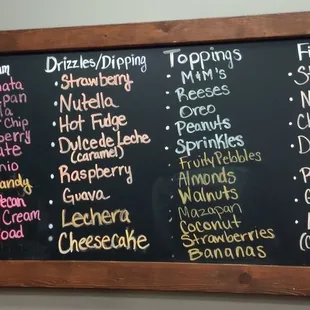 am
nata
pan
la
Chip
berry
ate
nio
andy
ecan
Cream
oad
Drizzles/Dipping
Strawberry
Nutella
Hot Fudge
Dulce de Leche
(caramel)
Raspberry
Guava
Lechera
Cheesecake
Toppings
M&M's
Reeses
Oreo
Peanuts
Sprinkles
Fruity Pebbles
Almonds
Walnuts
Mazapan
Coconut
Strawberries
Bananas
Fi